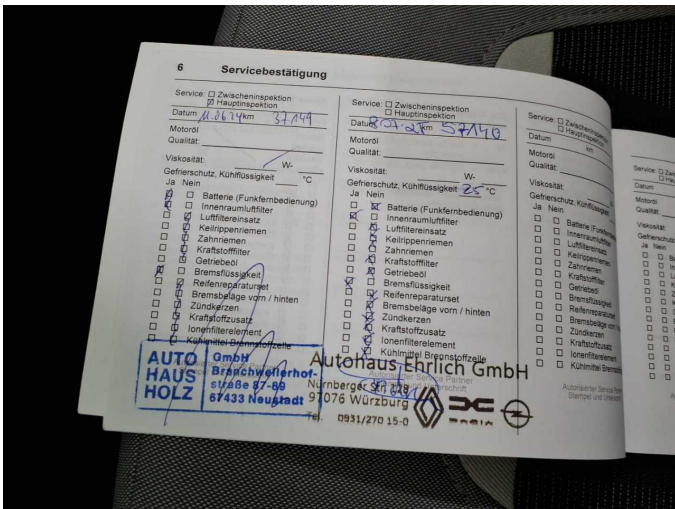 6 Servicebestätigung
Service: Zwischeninspektion
Hauptinspektion
Datum 11.06.24 km 37149
Motoröl
Qualität:
Viskosität: W-
Gefrierschutz, Kühlflüssigkeit °C
Ja Nein
Batterie (Funkfernbedienung)
Innenraumluftfilter
Luftfiltereinsatz
Keilrippenriemen
Zahnriemen
Kraftstofffilter
Getriebeöl
Bremsflüssigkeit
Reifenreparaturset
Bremsbeläge vorn / hinten
Zündkerzen
Kraftstoffzusatz
Ionenfilterelement
Kühlmittel Brennstoffzelle
AUTO
HAUS
HOLZ
GmbH
Branchweilerhof-
straße 87-89
67433 Neustadt
Service: Zwischeninspektion
Hauptinspektion
Datum km 57140
Motoröl
Qualität:
Viskosität: W-
Gefrierschutz, Kühlflüssigkeit 25 °C
Ja Nein
Batterie (Funkfernbedienung)
Innenraumluftfilter
Luftfiltereinsatz
Keilrippenriemen
Zahnriemen
Kraftstofffilter
Getriebeöl
Bremsflüssigkeit
Reifenreparaturset
Bremsbeläge vorn / hinten
Zündkerzen
Kraftstoffzusatz
Ionenfilterelement
Kühlmittel Brennstoffzelle
Autorisierter Service Partner
Stempel und Unterschrift
Autohaus Ehrlich GmbH
Nürnberger Str. 118
97076 Würzburg
Tel. 0931/270 15-0
DACIA
Service: Zwischeninspektion
Hauptinspektion
Datum km
Motoröl
Qualität:
Viskosität:
Gefrierschutz, Kühlflüssigkeit
Ja Nein
Batterie (Funkfernb
Innenraumluftfilter
Luftfiltereinsatz
Keilrippenriemen
Zahnriemen
Kraftstofffilter
Getriebeöl
Bremsflüssigkeit
Reifenreparaturset
Bremsbeläge vorn
Zündkerzen
Kraftstoffzusatz
Ionenfilterelement
Kühlmittel Brennst
Autorisierter Service
Stempel und Unters
Service:
Datum
Motoröl
Qualität:
Viskosität:
Gefrierschutz
Ja Nein